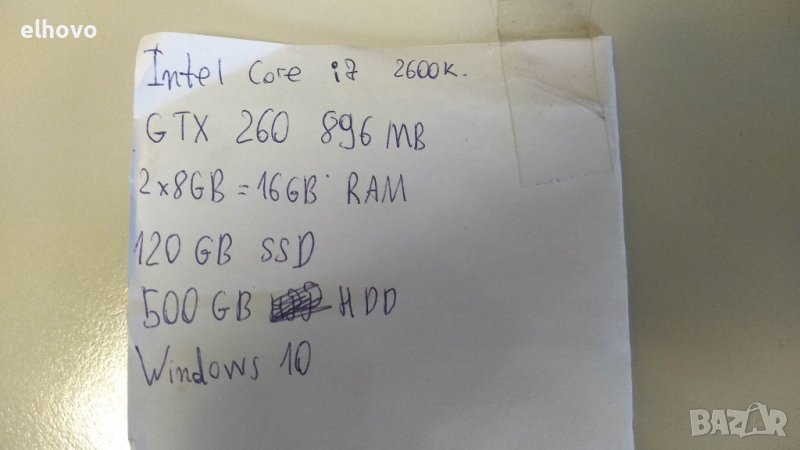 elhovo
Intel Core i7 2600K.
GTX 260 896 MB
2x8GB = 16GB RAM
120 GB SSD
500 GB HDD
Windows 10
BAZAR